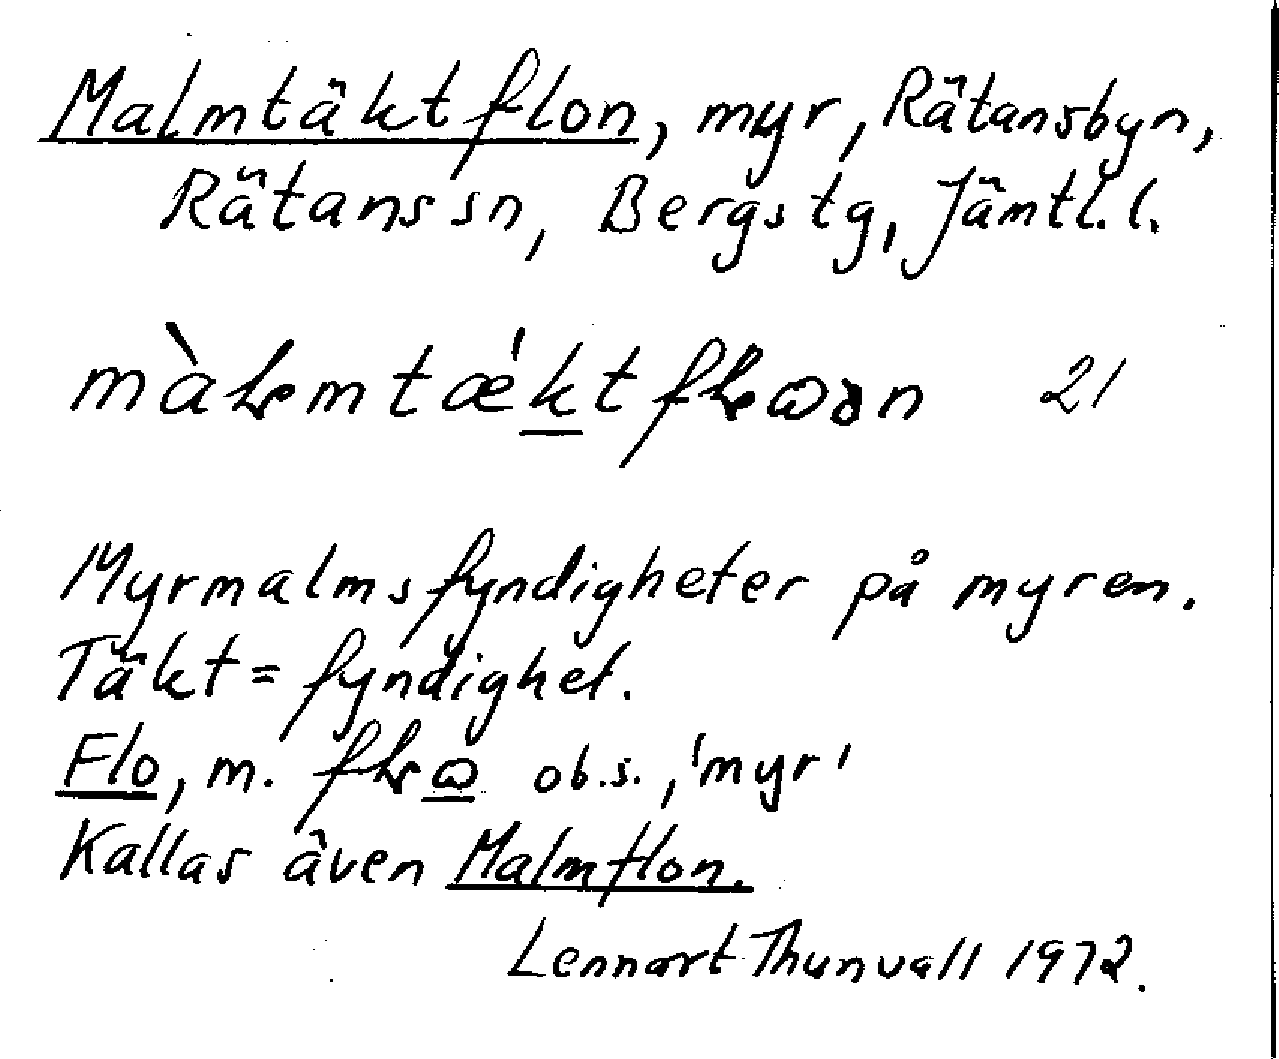 Malmtäktflon, myr, Rätansbyn,
Rätans sn, Bergs tg, Jämtl. l.
21
Myrmalmsfyndigheter på myren.
Täkt = fyndighet.
Flo, m. ob.s., 'myr'
Kallas även Malmflon.
Lennart Thunvall 1972.